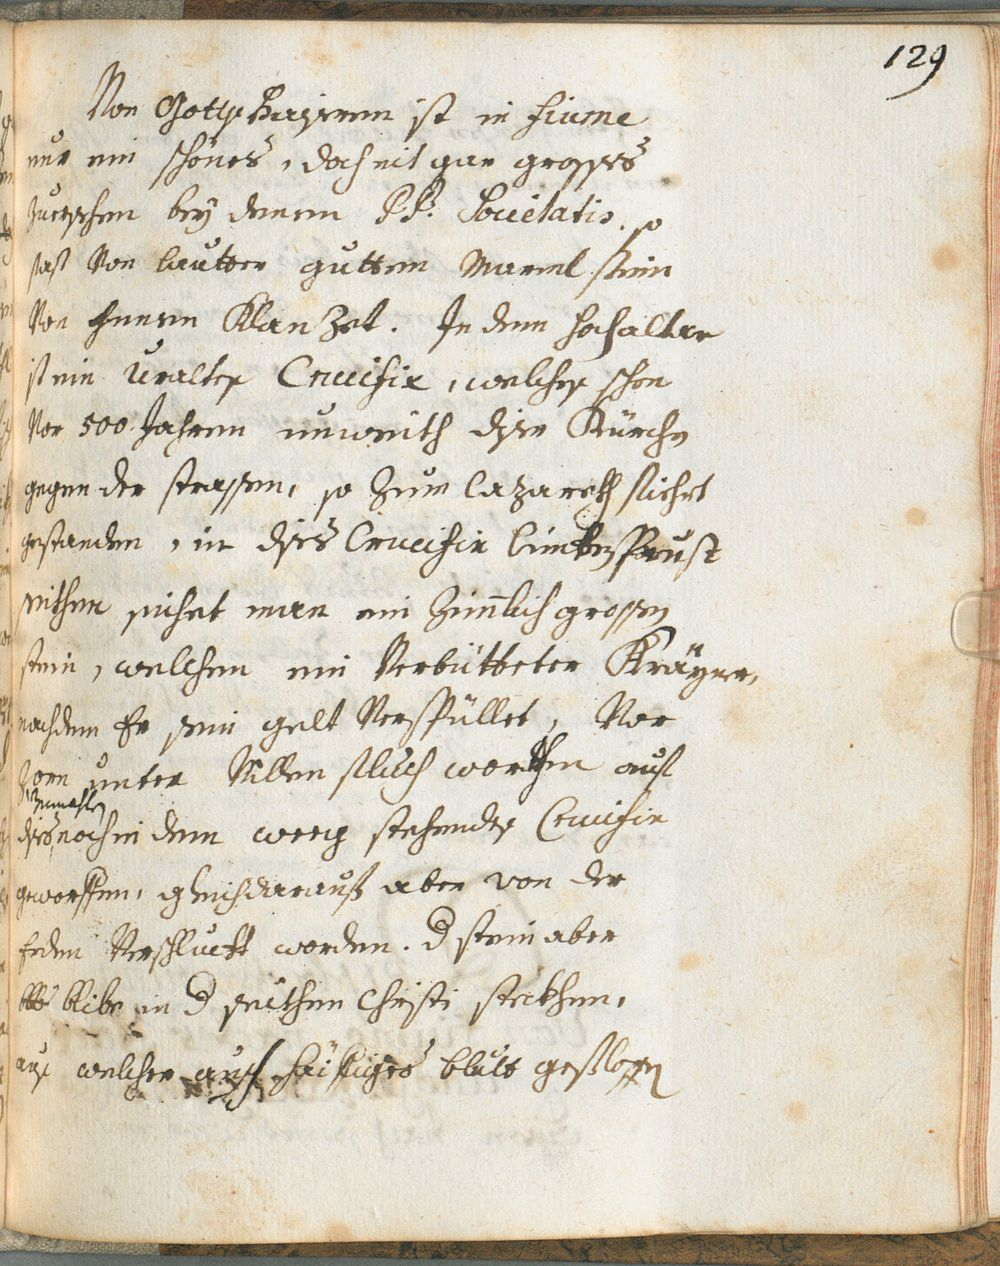 129
Von Gottsheüsern ist in Fiume
nur ein schönes, doch nit gar grosses
zuersehen bey denen PP. Societatis, so
fast Von lautter guttem Marmelstein
Von jnnen Klanzet. In dem hochaltar
ist ein Uraltes Crucifix, welches schon
Vor 500 Jahren unweith diser Kürchen
gegen der strassen, so zum Lazareth führet
gestanden, in dises Crucifix lincken Prust
seithen sichet man ein zimlich grossen
stein, welchen ein Verbütteter Krayner,
nachdem Er sein gelt Verspüllet, Vor
zorn unter Villen fluch worthen auf
dises damahls noch in dem weeg stehendes Crucifix
geworffen, gleich darauf aber von der
Erden Verschluckt worden. d stein aber
blibe in d seithen Christi steckhen,
aus welcher auch häufiges blutt geflossen